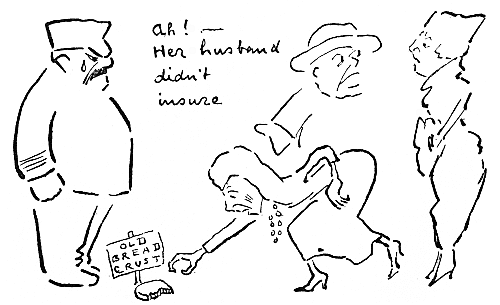 Ah! —
Her husband
didn't
insure
OLD
BREAD
CRUST